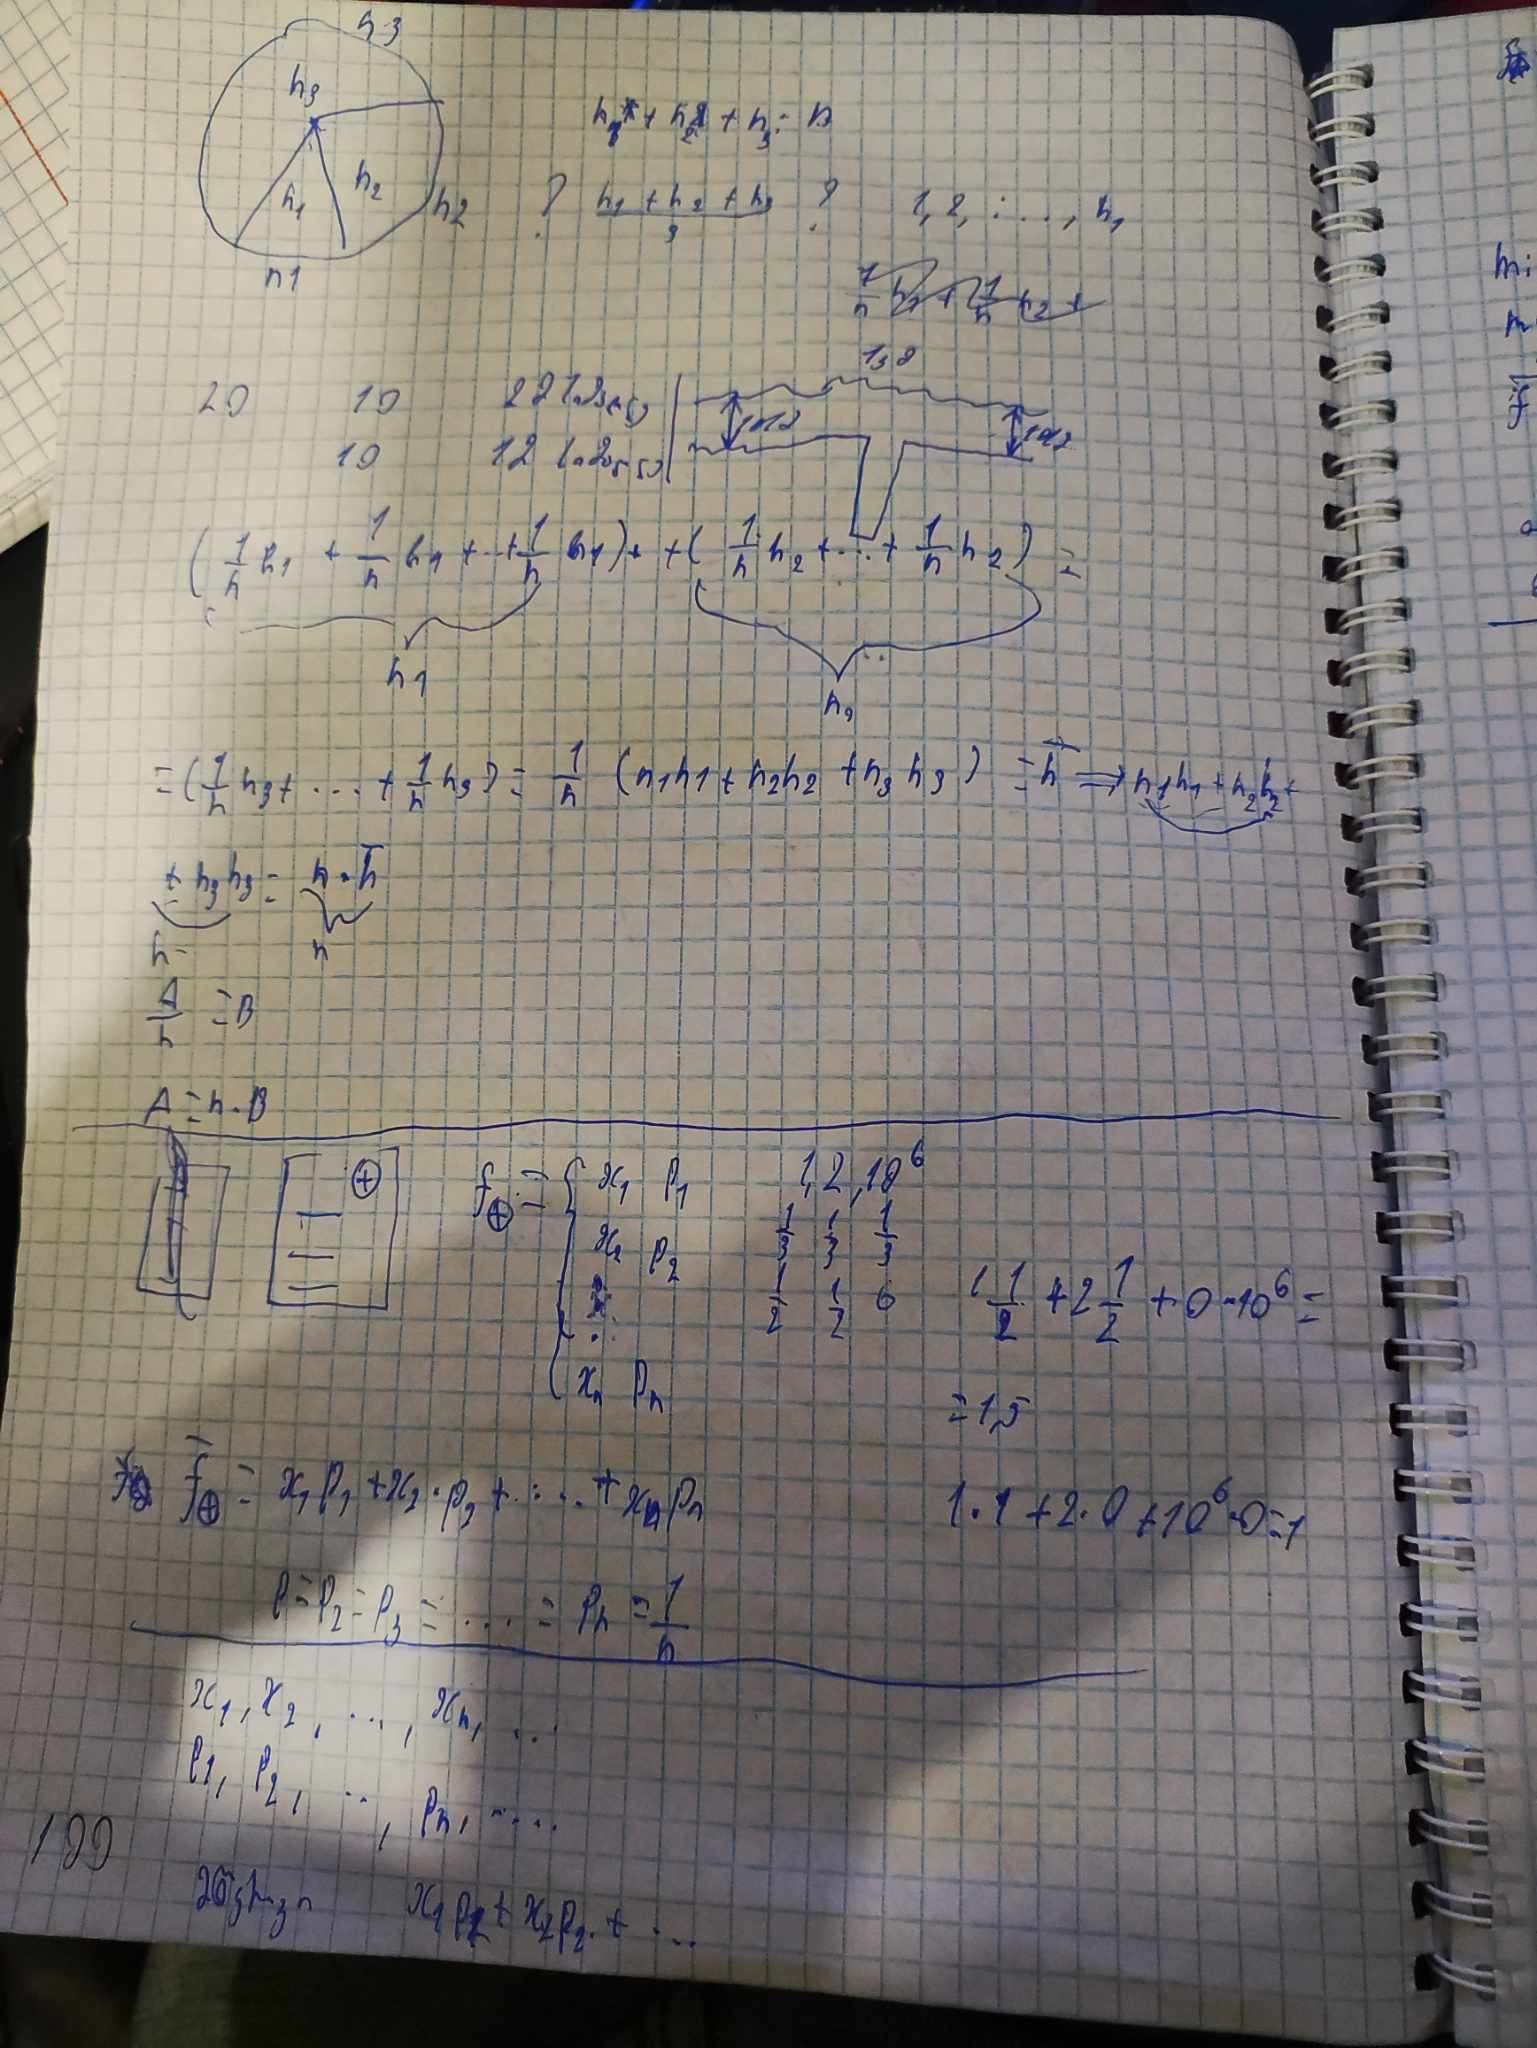 n3
h3
h1
h2
n2
n1
n1 + n2 + n3 = n
? (h1 + h2 + h3)/3 ? 1, 2, ..., n1
1/n h1 + 1/n h2 +
20 10 22
10 12
(1/n h1 + 1/n h1 + ... + 1/n h1) + + (1/n h2 + ... + 1/n h2) =
n1
= (1/n h3 + ... + 1/n h3) = 1/n (n1h1 + n2h2 + n3h3) = h̄ ⇒ n1h1 + n2h2 +
+ n3h3 = n · h̄
n
A/n = B
A = n · B
⊕ f⊕ = { x1 p1 1, 2, 10^6
x2 p2 1/3 1/3 1/3
1/2 1/2 0 1 1/2 + 2 1/2 + 0 · 10^6 =
xn pn
= 1,5
f̄⊕ = x1p1 + x2 · p2 + ... + xnpn
1 · 1 + 2 · 0 + 10^6 · 0 = 1
p = p2 = p3 = ... = pn = 1/n
x1, x2, ..., xn, ...
p1, p2, ..., pn, ...
x1p1 + x2p2 + ...